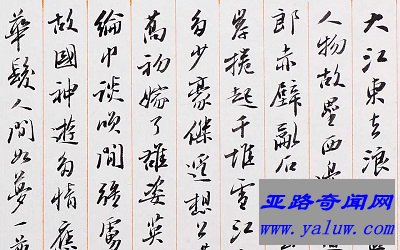 大江東去浪
人物故壘西邊
郎赤壁亂石
岸捲起千堆雪江
多少豪傑遙想公
喬初嫁了雄姿英
綸巾談笑間強虜
故國神遊多情應
華髮人間如夢一
亚路奇闻网
www.yaluw.com